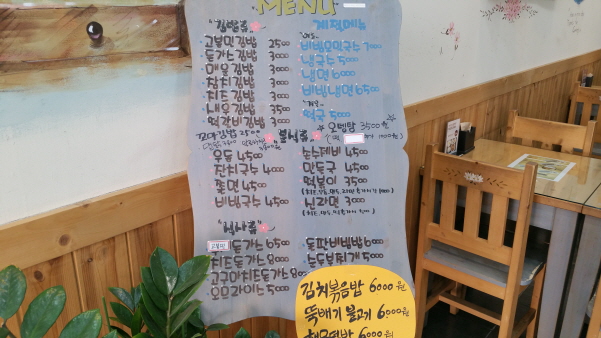 MENU
"김밥류"
고봉민김밥 2500
돈가스김밥 3500
매운김밥 3000
참치김밥 3000
치즈김밥 3000
새우김밥 3500
떡갈비김밥 3000
꼬마김밥 2500
"분식류"
우동 4500
잔치국수 4500
쫄면 4500
비빔국수 4500
"식사류"
돈가스 6500
치즈돈가스 8000
고구마치즈돈가스 8000
오므라이스 5500
계절메뉴
비빔모밀국수 7000
냉국수 5000
냉면 6000
비빔냉면 6500
떡국 5000
오뎅탕 3500원
손수제비 4500
만둣국 4500
떡볶이 3500
신라면 3000
돌판비빔밥 6000
순두부찌개 5000
김치볶음밥 6000원
뚝배기 불고기 6000원
6000원